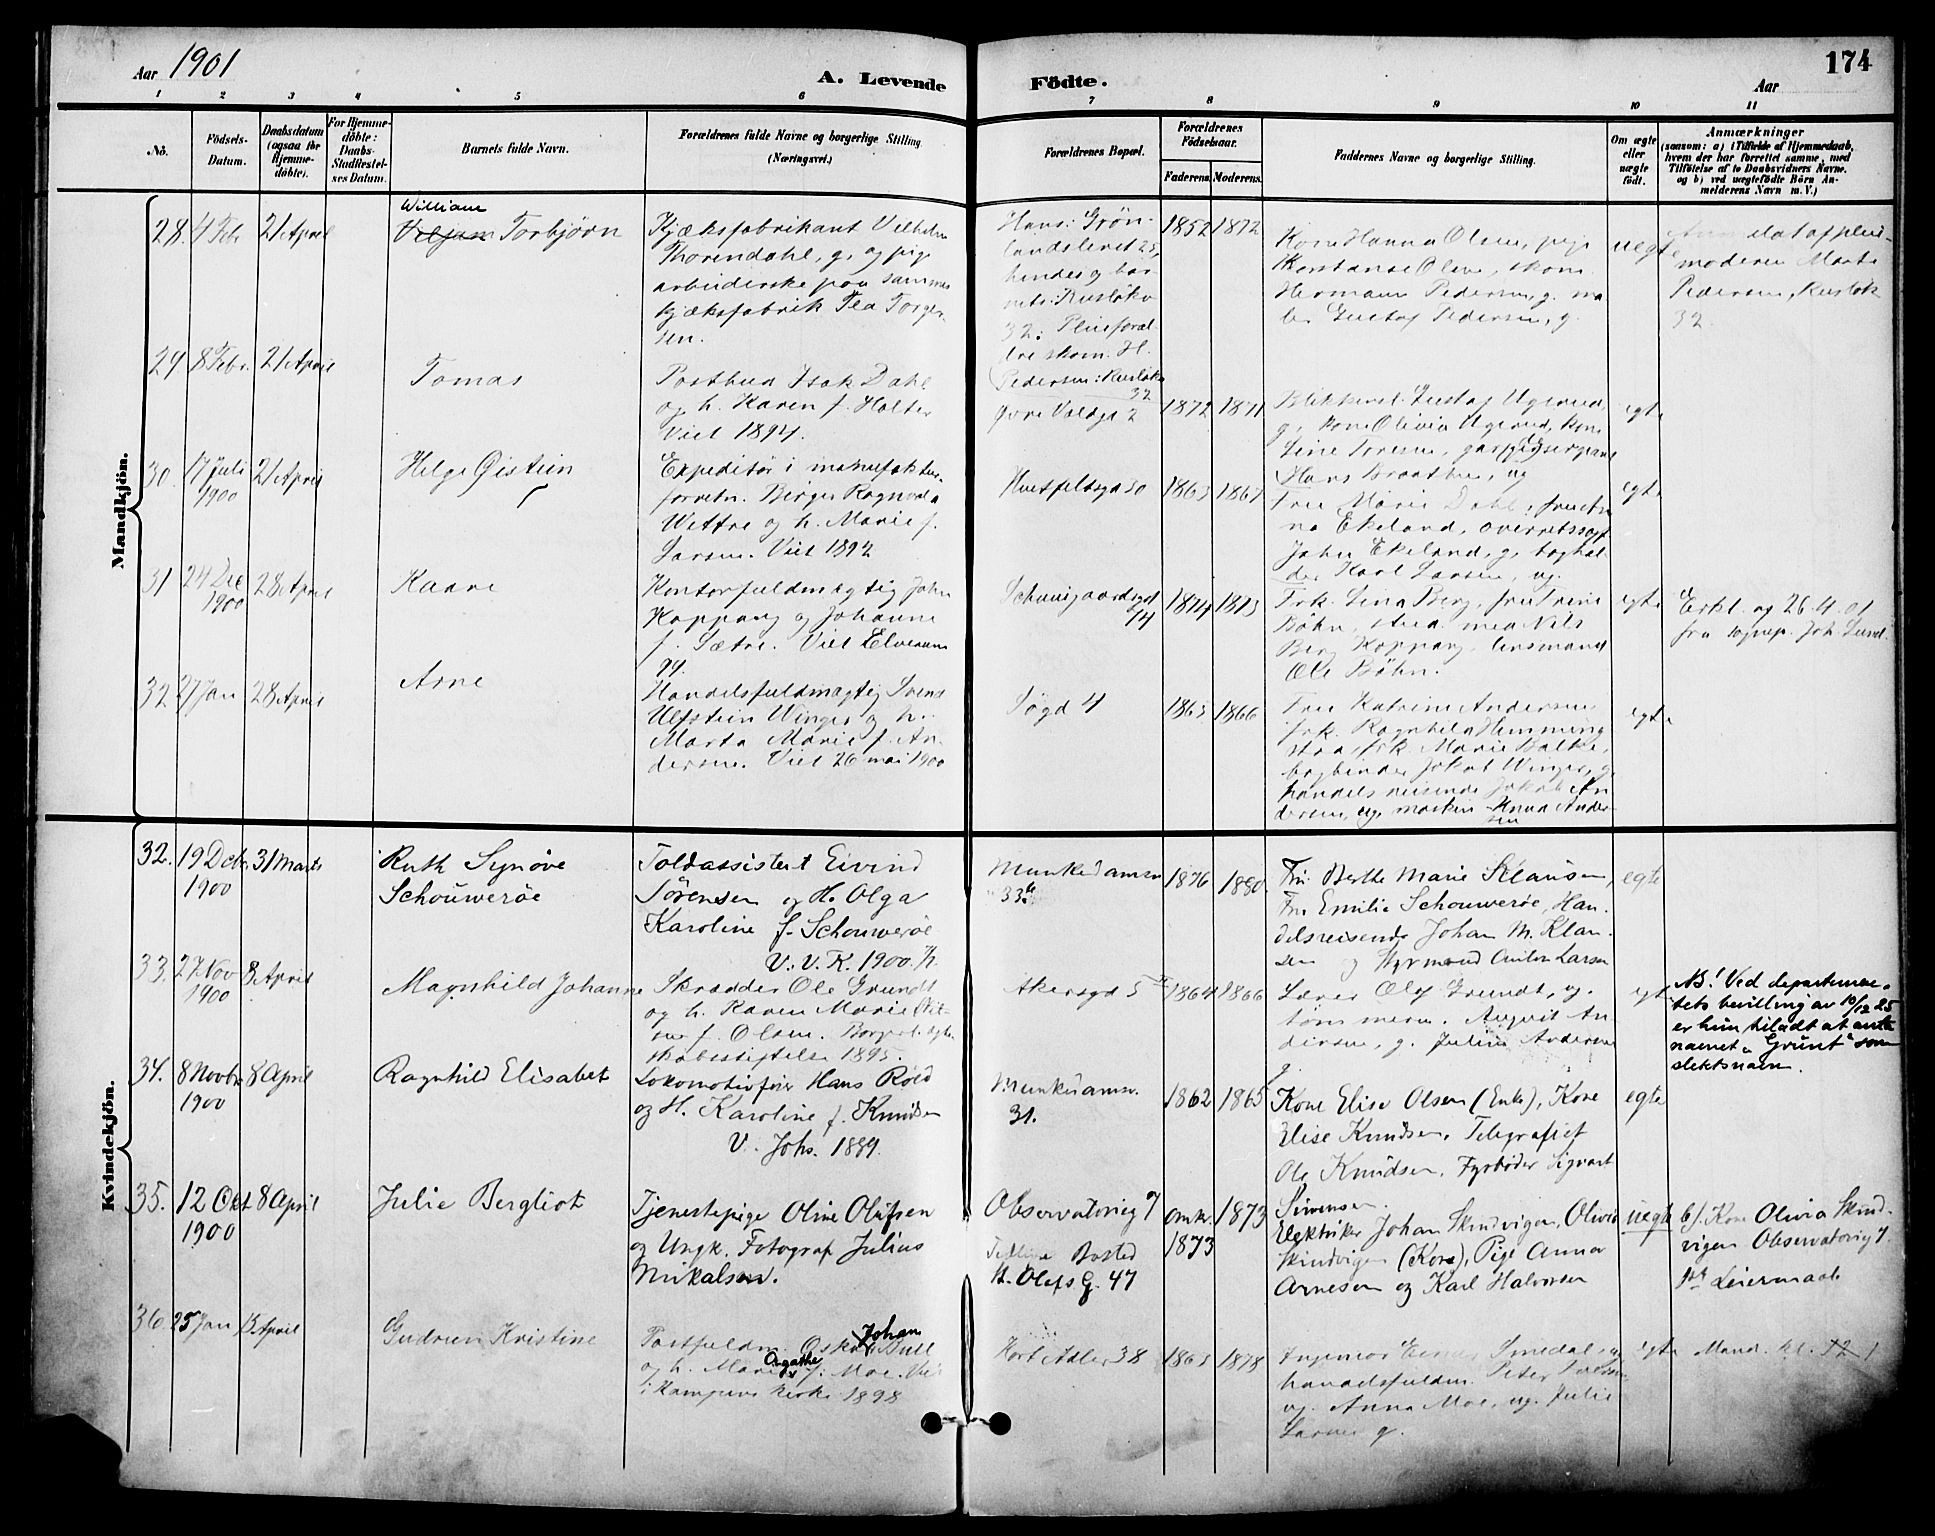 Aar 1901
A. Levende
Födte.
Aar
174
1 2 3 4 5 6 7 8 9 10 11
No.
Födsels-
Datum.
Daabsdatum
(ogsaa for
Hjemme-
döbte).
For Hjemme-
döbte:
Daabs-
Stadfæstel-
ses Datum.
Barnets fulde Navn.
Forældrenes fulde Navne og borgerlige Stilling
(Næringsvei.)
Forældrenes Bopæl.
Forældrenes
Födselsaar.
Faderens. Moderens.
Faddernes Navne og borgerlige Stilling.
Om ægte
eller
uægte
födt.
Anmærkninger
(saasom: a) i Tilfælde af Hjemmedaab,
hvem der har forrettet samme, med
Tilföielse af to Daabsvidners Navne.
og b) ved uægtefödte Börn An-
melderens Navn m. V.)
Mandkjön.
28. 4 Febr 21 April
William
Torbjörn
Kjæksfabrikant Vilhelm
Thorendahl, g. og pige
arbeiderske paa samme
kjæksfabrik Tea Torger-
sen.
Hans: Grön-
landsleret 25,
hendes og bar-
nets: Rusløkv
32. Pleieforæl-
dre skom. H.
Pedersen: Rusløkv
32
1852 1872
Kone Hanna Olsen, pige
Konstanse Olsen, skom.
Hermann Pedersen, g. ma-
ler Gustaf Pedersen, g.
uegte
af pleie-
moderen Marte
Pedersen, Rusløk
32.
29 8 Febr. 21 April
Tomas
Postbud Isak Dahl
og h. Karen f. Holter
Viet 1894.
Øvre Voldga 2
1872 1871
Blikkensl. Gustaf Ugerud,
g, kone Olivia Ugerud, kone
Line Toresen,
Hans Braathen, ug
egte
30. 17 juli 21 April
1900
Helge Øistein
Expeditör i manufaktur-
forretn. Birger Ragnvald
Wettre og h. Marie f.
Larsen. Viet 1892
Huitfeldtsgd 50
1863 1867
Frue Marie Dahl,
Ekeland, overretssagf
John Ekeland, g, boghol-
der Karl Larsen, ug.
egte
31 24 Dec 28 April
1900
Kaare
Kontorfuldmægtig John
Koppang og Johanne
f. Sætre. Viet Elverum
99.
Schweigaardsgd
14
1874 1873
Frk. Lina Berg, frue Trine
Bøhn, stud. med Nils
Berg Koppang, lensmand
Ole Bøhn.
egte
Erkl. og 26.4.01
fra sognep. Joh. Lund.
32 27 Jan 28 April
Arne
Handelsfuldmægtig Svend
Ulfstein Winger og h.
Marta Marie f. An-
dersen. Viet 26 mai 1900
Søgd 4
1865 1866
Frue Katrine Andersen,
frk. Ragnhild Hemming
stad, frk. Marie Balke,
bogbinder Jakob Winger, g,
handelsreisende Jakob An-
dersen, ug, maskin Knud Ander-
sen
egte
Kvindekjön.
32. 19 Debr 31 Marts
1900
Ruth Synøve
Schouwerøe
Toldassistent Eivind
Sørensen og H. Olga
Karoline f. Schouwerøe
V. V. K. 1900. K.
Munkedamsv
33b
1876 1880
Fru Berthe Marie Klausen,
Fru Emilie Schouwerøe, Han-
delsreisende Johan M. Klau-
sen og Styrmand Anton Larsen
egte
33. 27 Nov 8 April
1900
Magnhild Johanne
Skrædder Ole Grundt
og h. Karen Marie
f. Olsen. Borgerl. Ægte
skabsstiftelse 1895.
Akersgd 5
1864 1866
Lærer Olaf Grundt, ug.
tömmerm. August An
dersen, g. Julie Andersen
g.
egte
NB! Ved departemen-
tets bevilling av 10/12 25
er hun tilladt at anta
navnet „Grünt" som
slektsnavn.
34. 8 Novbr 8 April
1900
Ragnhild Elisabet
Lokomotivfører Hans Röld
og H. Karoline f. Knudsen
V. Johs. 1889.
Munkedamsv.
31.
1862 1865
Kone Elise Olsen (Enke), Kone
Elise Knudsen, Telegrafist
Ole Knudsen, Fyrbøder Sigvart
Simensen.
egte
35. 12 Okt 8 April
1900
Julie Bergliot
Tjenestepige Oline Olufsen
og Ungk. Fotograf Julius
Mikalsen.
Observatorieg 7
Tidligere Bosted
St. Olafs G. 47
omkr. 1873
1873
Elektriker Johan Skindvigen, Olivia
Skindvigen (Kone), Pige Anna
Arnesen og Karl Halvorsen
uegte
b). Kone Olivia Skind-
vigen Observatorieg 7.
1ste Leiermaal.
36. 25 Jan 13 April
Gudrun Kristine
Postfuldm. Oskar Johan Bull
og h. Marie Agathe f. Moe. Viet
i Kampens kirke 1898
Kort Adler 38
1865 1878
Ingeniör Smedal, ug
handelsfuldm. Peter
ug. Anna Moe, ug. Julie
Larsen g.
egte
Mand. kl. 12